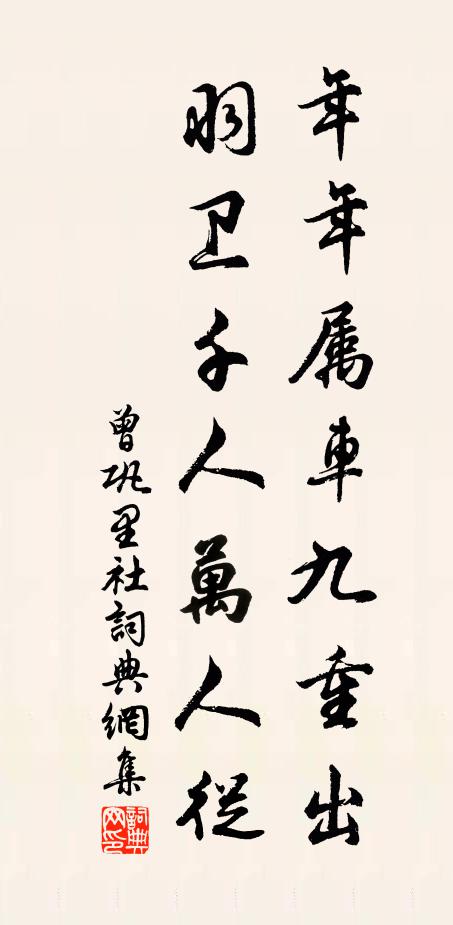 年年属車九重出
羽卫千人萬人從
曾巩里社詞典網集
詞典網印